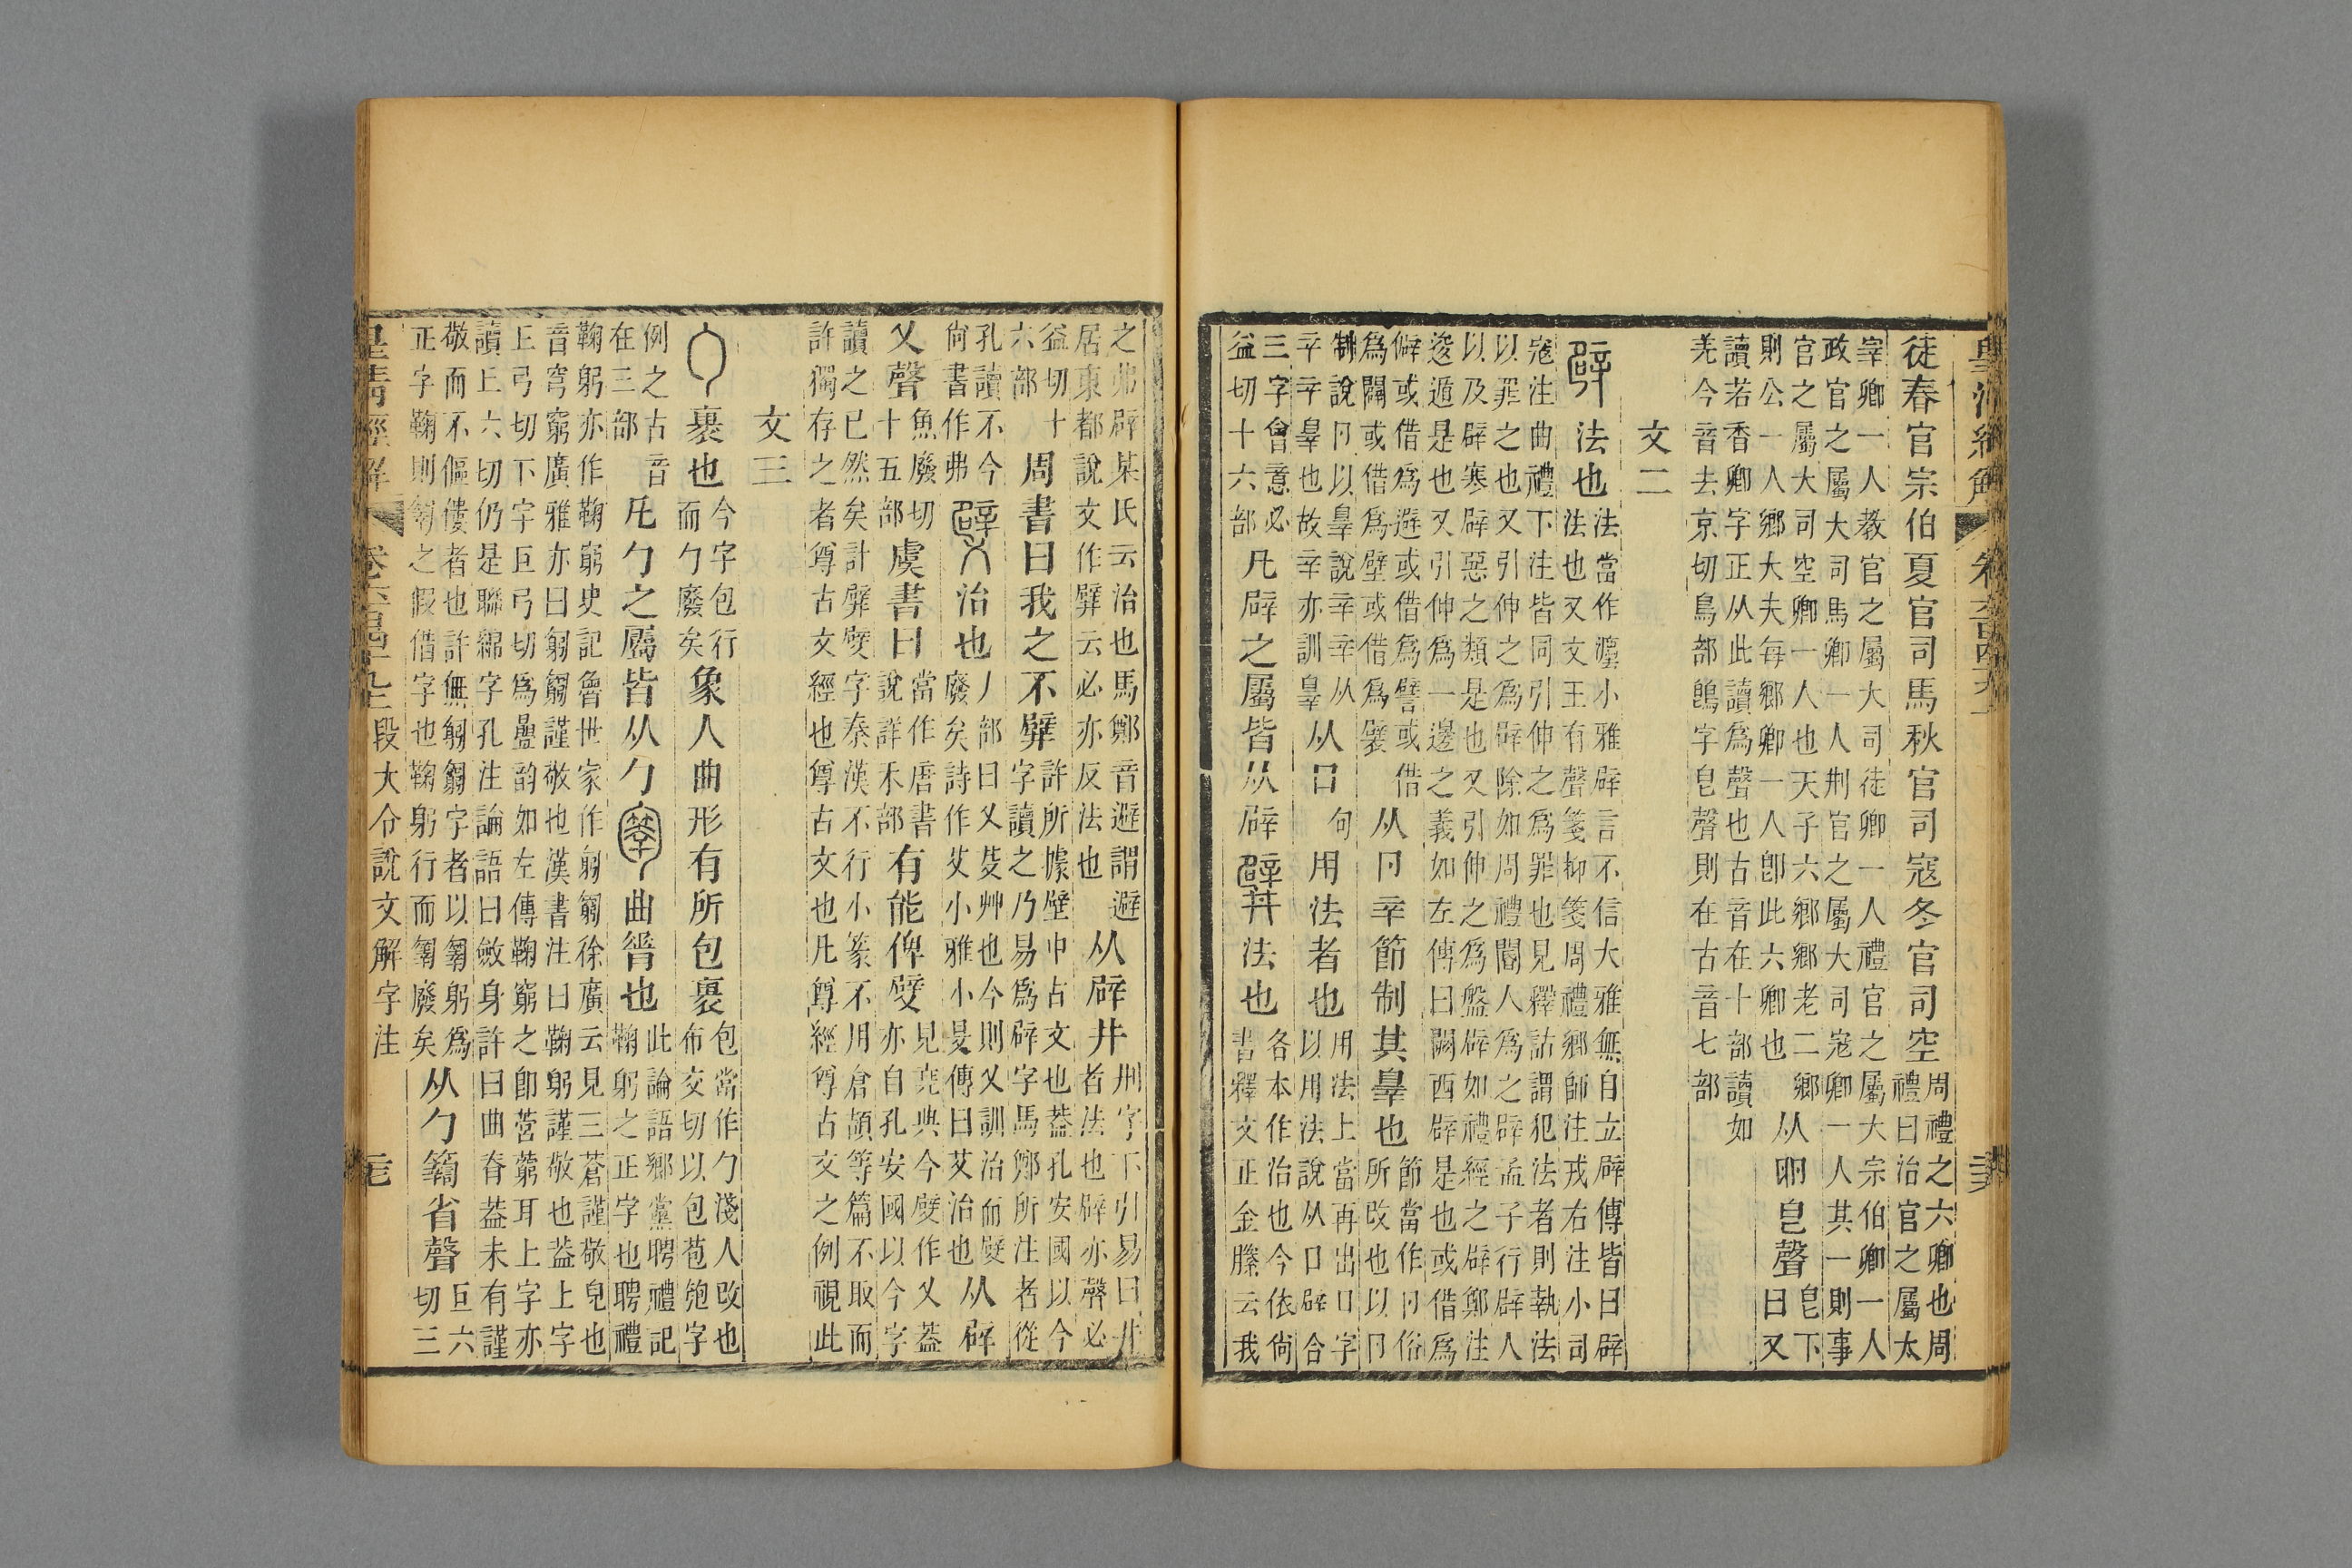 皇清經解 卷六百四十九
徒春官宗伯夏官司馬秋官司寇冬官司空
周禮之六卿也周
禮曰治官之屬太
宰卿一人教官之屬大司徒卿一人禮官之屬大宗伯卿一人
政官之屬大司馬卿一人刑官之屬大司寇卿一人其一則事
官之屬大司空卿一人也天子六鄉鄉老二鄉
則公一人鄉大夫每鄉卿一人卽此六卿也
从𠨍皀聲
皀下
曰又
讀若香卿字正从此讀爲聲也古音在十部讀如
羌今音去京切鳥部鴖字皀聲則在古音七部
文二
辟 法也
法當作灋小雅辟言不信大雅無自立辟傳皆曰辟
法也又文王有聲箋抑箋周禮鄉師注戎右注小司
寇注曲禮下注皆同引伸之爲罪也見釋詁謂犯法者則執法
以罪之也又引伸之爲辟除如周禮閽人爲之辟孟子行辟人
以及辟寒辟惡之類是也又引伸之爲盤辟如禮經之辟鄭注
逡遁是也又引伸爲一邊之義如左傳曰闕西辟是也或借爲
僻或借爲避或借爲譬或借
爲闢或借爲壁或借爲襞
从卩䇂節制其辠也
節當作卩俗
所改也以卩
制說卩以辠說䇂䇂从
䇂䇂辠也故䇂亦訓辠
从口
句
用法者也
用法上當再出口字
以用法說从口辟合
三字會意必
益切十六部
凡辟之屬皆从辟
𨐨 法也
各本作治也今依尙
書釋文正金縢云我
之弗辟某氏云治也馬鄭音避謂避
居東都說文作𨐨云必亦反法也
从辟井
刑字下引易曰井
者法也辟亦聲必
益切十
六部
周書曰我之不𨐨
許所據壁中古文也葢孔安國以今
字讀之乃易爲辟字馬鄭所注者從
孔讀不今
尙書作弗
𨐵 治也
丿部曰乂芟艸也今則乂訓治而𨐵
廢矣詩作艾小雅小旻傳曰艾治也
从辟
乂聲
魚廢切
十五部
虞書曰
當作唐書
說詳禾部
有能俾𨐵
見堯典今𨐵作乂葢
亦自孔安國以今字
讀之已然矣計𨐨𨐵字秦漢不行小篆不用倉頡等篇不取而
許獨存之者尊古文經也尊古文也凡尊經尊古文之例視此
文三
勹 裹也
今字包行
而勹廢矣
象人曲形有所包裹
包當作勹淺人改也
布交切以包苞匏字
例之古音
在三部
凡勹之屬皆从勹
曲脊也
此論語鄉黨聘禮記
鞠躬之正字也聘禮
鞠躬亦作鞠窮史記魯世家作匔匔徐廣云見三蒼謹敬皃也
音穹窮廣雅亦曰匔匔謹敬也漢書注曰鞠躬謹敬也葢上字
上弓切下字巨弓切爲疊韵如左傳鞠窮之卽䓖耳上字亦
讀上六切仍是聯綿字孔注論語曰斂身許曰曲脊葢未有謹
敬而不傴僂者也許無匔匔字者以躬爲
正字鞠則之假借字也鞠躬行而廢矣
从勹省聲
巨六
切三
皇清經解 卷六百四十九 段大令說文解字注